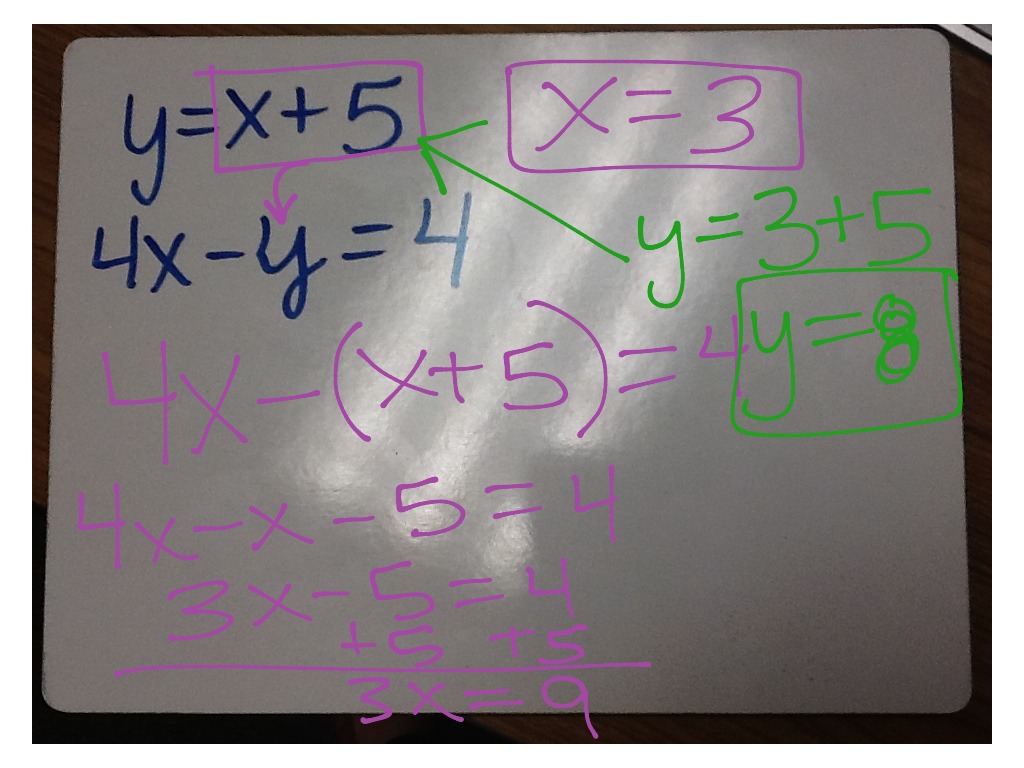 y=x+5
x=3
4x-y=4
y=3+5
y=8
4x-(x+5)=4
4x-x-5=4
3x-5=4
+5 +5
3x=9